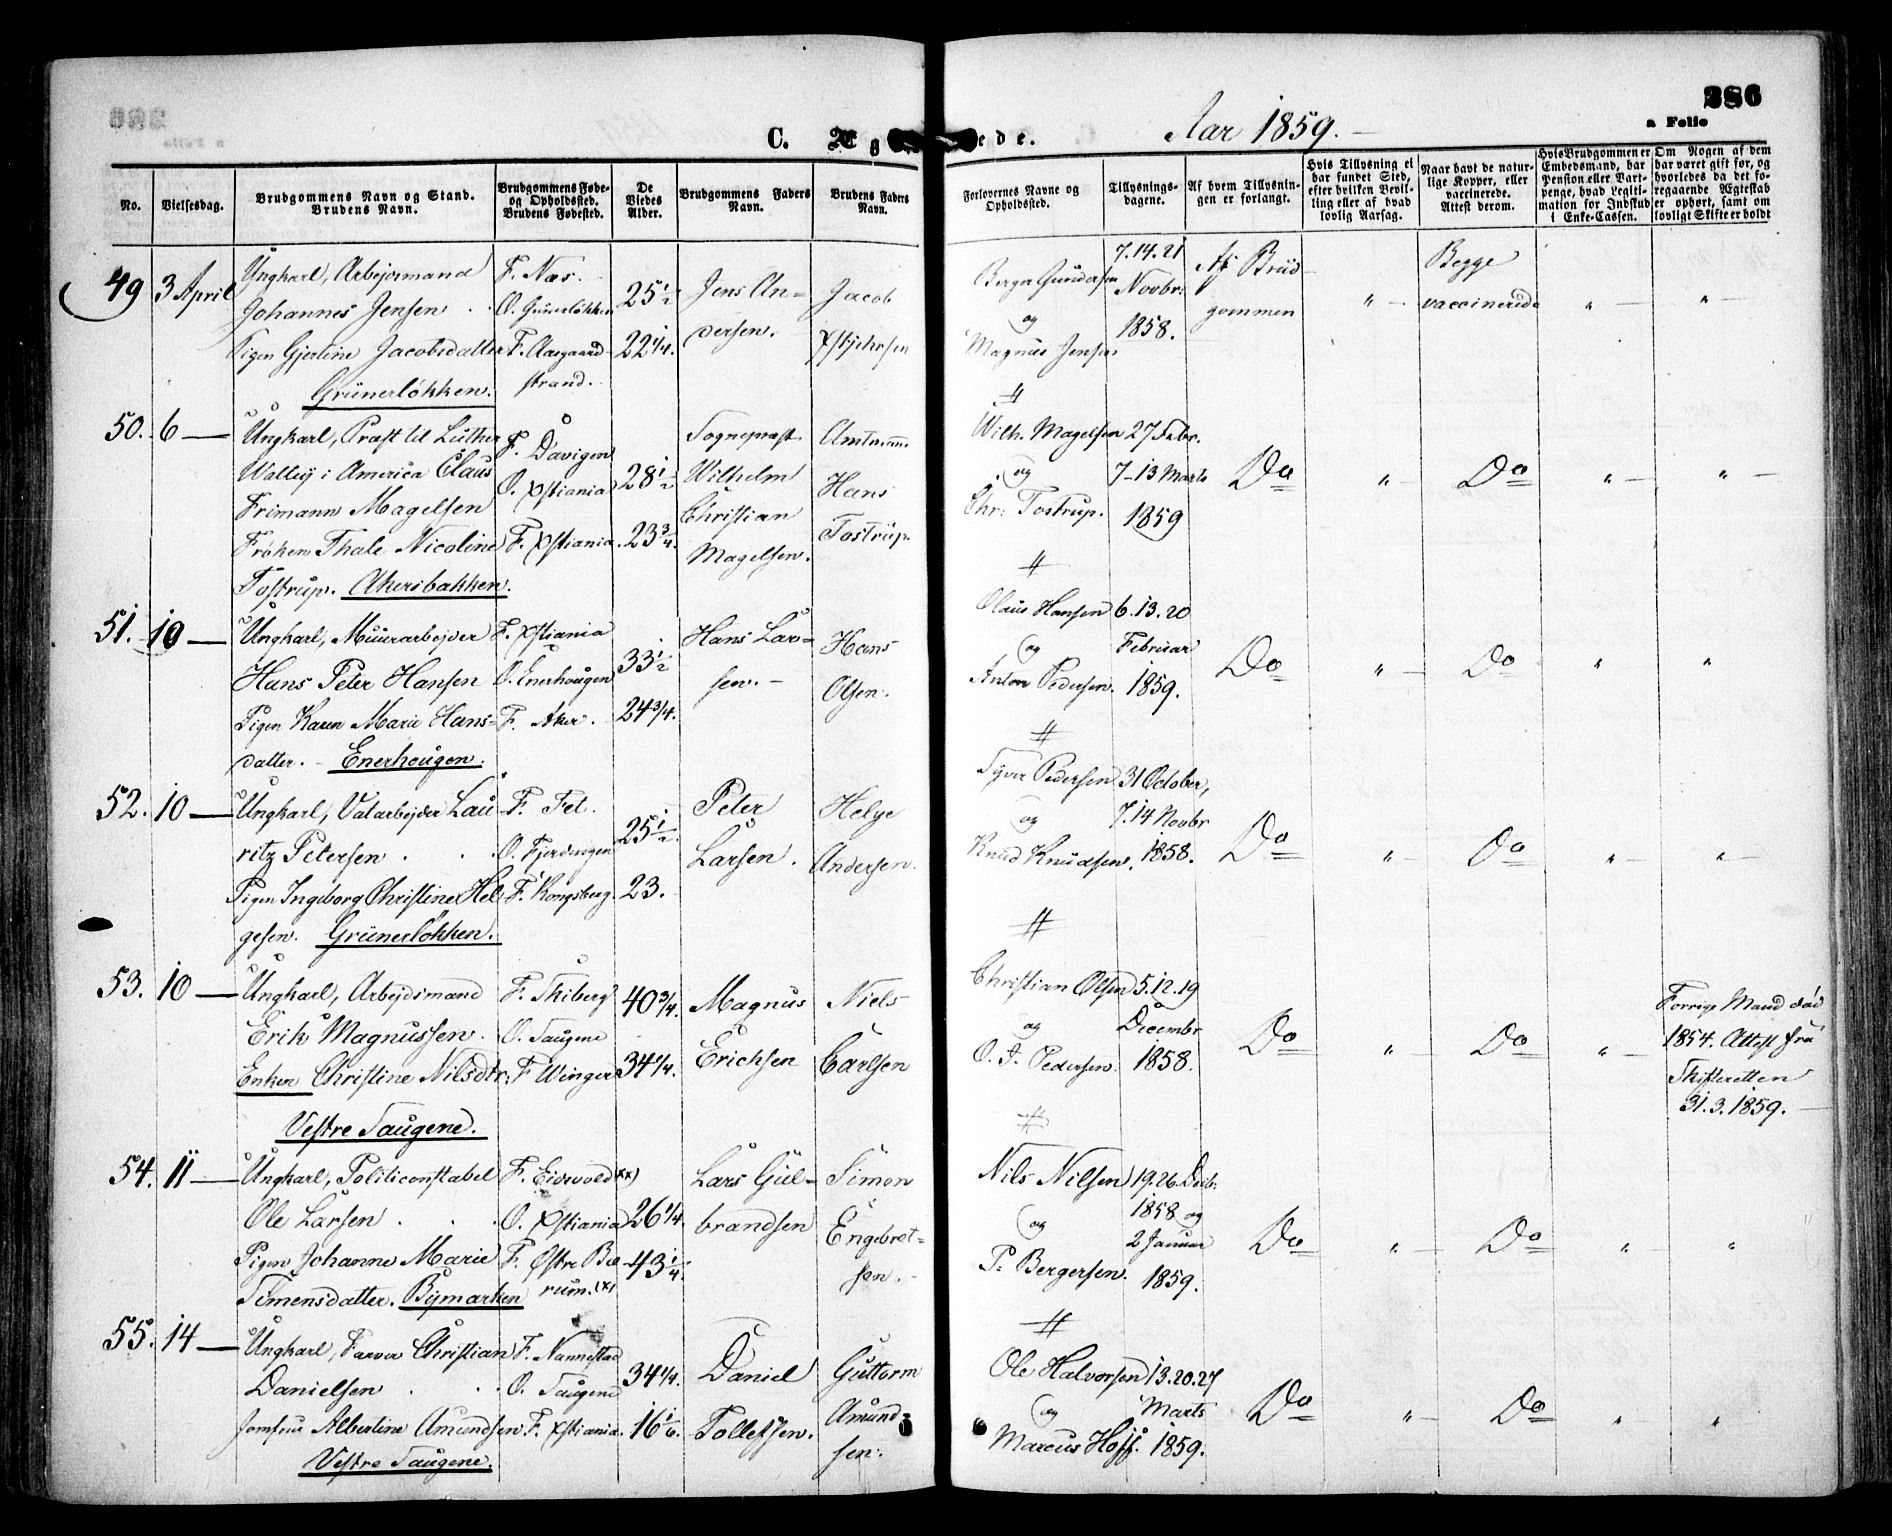 286
a Folio
C. Æg ede. Aar 1859.
No.
Vielsesdag.
Brudgommens Navn og Stand.
Brudens Navn.
Brudgommens Føde-
og Opholdssted.
Brudens Fødested.
De
Viedes
Alder.
Brudgommens Faders
Navn.
Brudens Faders
Navn.
Forlovernes Navne og
Opholdssted.
Tillysnings-
dagene.
Af hvem Tillysnin-
gen er forlangt.
Hvis Tillysning ei
har fundet Sted,
efter hvilken Bevil-
ling eller af hvad
lovlig Aarsag.
Naar havt de natur-
lige Kopper, eller
vaccinerede.
Attest derom.
Hvis Brudgommen er
Embedsmand, har
Pension eller Vart-
penge, hvad Legiti-
mation for Indskud
i Enke-Cassen.
Om Nogen af dem
har været gift før, og
hvorledes da det fo-
regaaende Ægteskab
er ophørt, samt om
lovligt Skifte er holdt
49
3 April
Ungkarl, Arbejdsmand
Johannes Jensen
Pigen Gjerline Jacobsdatter
Grünerløkken.
F. Næs.
O. Grünerløkken
F. Aasgaard-
strand.
25 1/2
22 1/4.
Jens An-
dersen.
Jacob
Berger Gundersen
og
Magnus Jensen
7. 14. 21
Novbr.
1858.
Af Brud-
gommen
" —
Begge
vaccinerede
" —
" —
50.
6 —
Ungkarl, Præst til Luther
Walley i America Claus
Frimann Magelsen
Frøken Thale Nicoline
Tostrup. Akersbakken.
F. Davigen
O. Xstiania
F. Xstiania.
28 1/2
23 3/4.
Sognepræst
Wilhelm
Christian
Magelsen.
Amtmann
Hans
Tostrup.
Wilh. Magelsen
og
Chr: Tostrup.
27 Febr.
7-13 Marts
1859
Do
" —
Do
" —
" —
51.
10 —
Ungkarl, Muurarbejder
Hans Peter Hansen
Pigen Karen Marie Hans-
datter. - Enerhougen.
F. Xstiania
O. Enerhougen
F. Aker.
33 1/2
24 3/4.
Hans Lar-
sen. -
Hans
Olsen.
Olaus Hansen
og
Anton Pedersen.
6. 13. 20
Februar
1859.
Do
" —
Do
"
"
52.
10 —
Ungkarl, Valarbejder Lau-
ritz Petersen
Pigen Ingeborg Christine Hel-
gesen. Grünerløkken.
F. Fet.
O. Fjerdingen
F. Kongsberg.
25 1/2
23.
Peter
Larsen.
Helge
Andersen.
Syver Pedersen
og
Knud Knudsen.
31 October,
7. 14 Novbr
1858.
Do
" —
Do
" —
" —
53.
10 —
Ungkarl, Arbejdsmand
Erik Magnussen.
Enken Christine Nilsdtr:
Vestre Saugene.
F. Skiberg
O. Saugene
F. Winger
40 3/4.
34 1/4.
Magnus
Erichsen
Niels
Carlsen
Christian Olsen
og
O. A. Pedersen.
5. 12. 19
Decembr
1858.
Do
"
Do
" —
Forrige Mand død
1854. Attest fra
Skifteretten
31. 3. 1859. —
54.
11 —
Ungkarl, Politiconstabel
Ole Larsen
Pigen Johanne Marie
Simensdatter. Bymarken
F. Eidsvold xx)
O. Xstiania
F. Østre Bæ-
rum. (x)
26 1/4.
43 1/4.
Lars Gul-
brandsen
Simon
Engebret-
sen.
Nils Nilsen
og
P. Bergersen.
19. 26. Decbr.
1858 og
2 Januar
1859.
Do
" —
Do
" —
"
55.
14 —
Ungkarl, Farver Christian
Danielsen
Jomfru Albertine Amundsen
Vestre Saugene.
F. Nannestad
O. Saugene
F. Xstiania.
34 1/4.
16 1/6.
Daniel
Tollefsen.
Guttorm
Amund-
sen.
Ole Halvorsen
og
Marcus Hoff.
13. 20. 27
Marts
1859.
Do
" —
Do
"
"